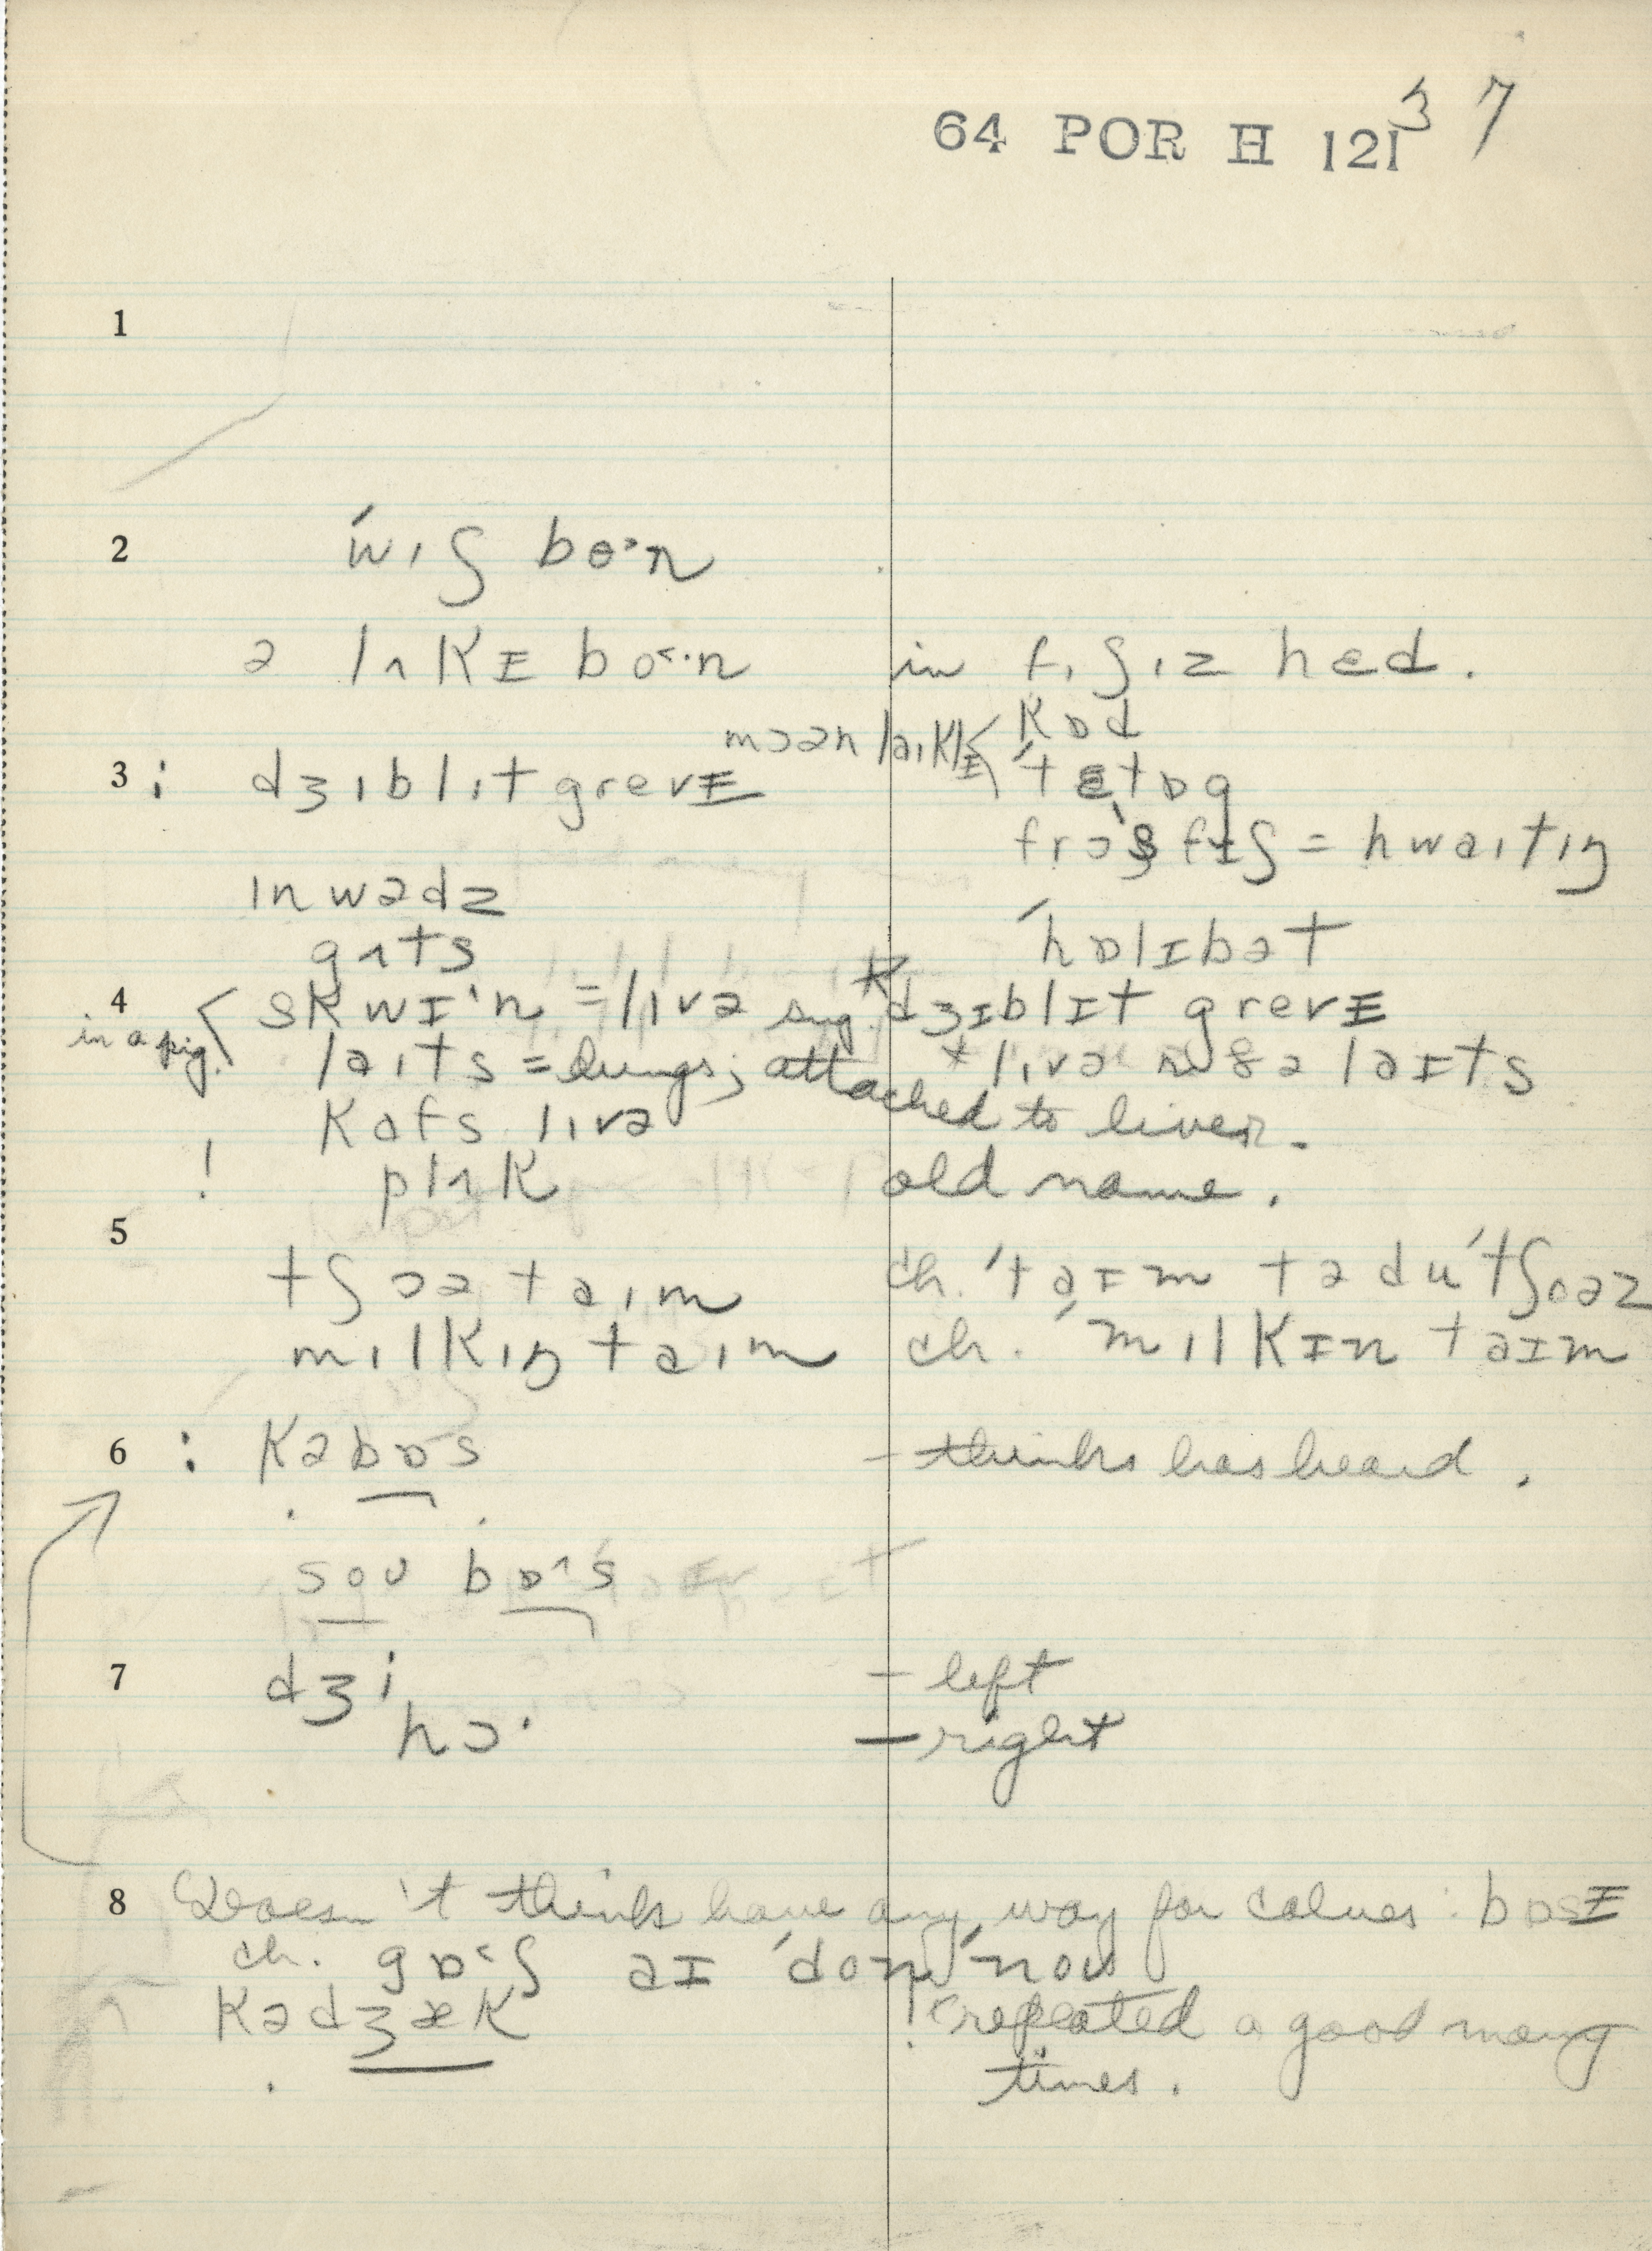 64 POR H 121 37
1
2 ˈwɪʃ boˑn
ə lʌkɪ boˑn in fɪʃɪz hed.
mɔən laɪklɪ < kɒd
3 : dʒɪblɪt grevɪ ˈtɒg
frɔs fɪʃ = hwaɪtɪŋ
ɪnwədz
gʌts ˈhɒlɪbət
4 skwɪˑn = lɪvə sug. dʒɪblɪt grevɪ
in a pig. laɪts = lungs; attached + lɪvə ləɪts
kafs lɪvə to liver.
! plʌk old name.
5
tʃɔə taɪm ch. ˈtaɪm tə du ˈtʃoəz
mɪlkɪŋ taɪm ch. ˈmɪlkɪn taɪm
6 : kəbɒs - thinks has heard.
soʊ bɒˑs
7 dʒi - left
hɔˑ - right
8 Doesn't think have any way for calves : bɒsɪ
ch. gɒˑʃ aɪ ˈdon ˈnoʊ
kədʒæk ! repeated a good many
times.